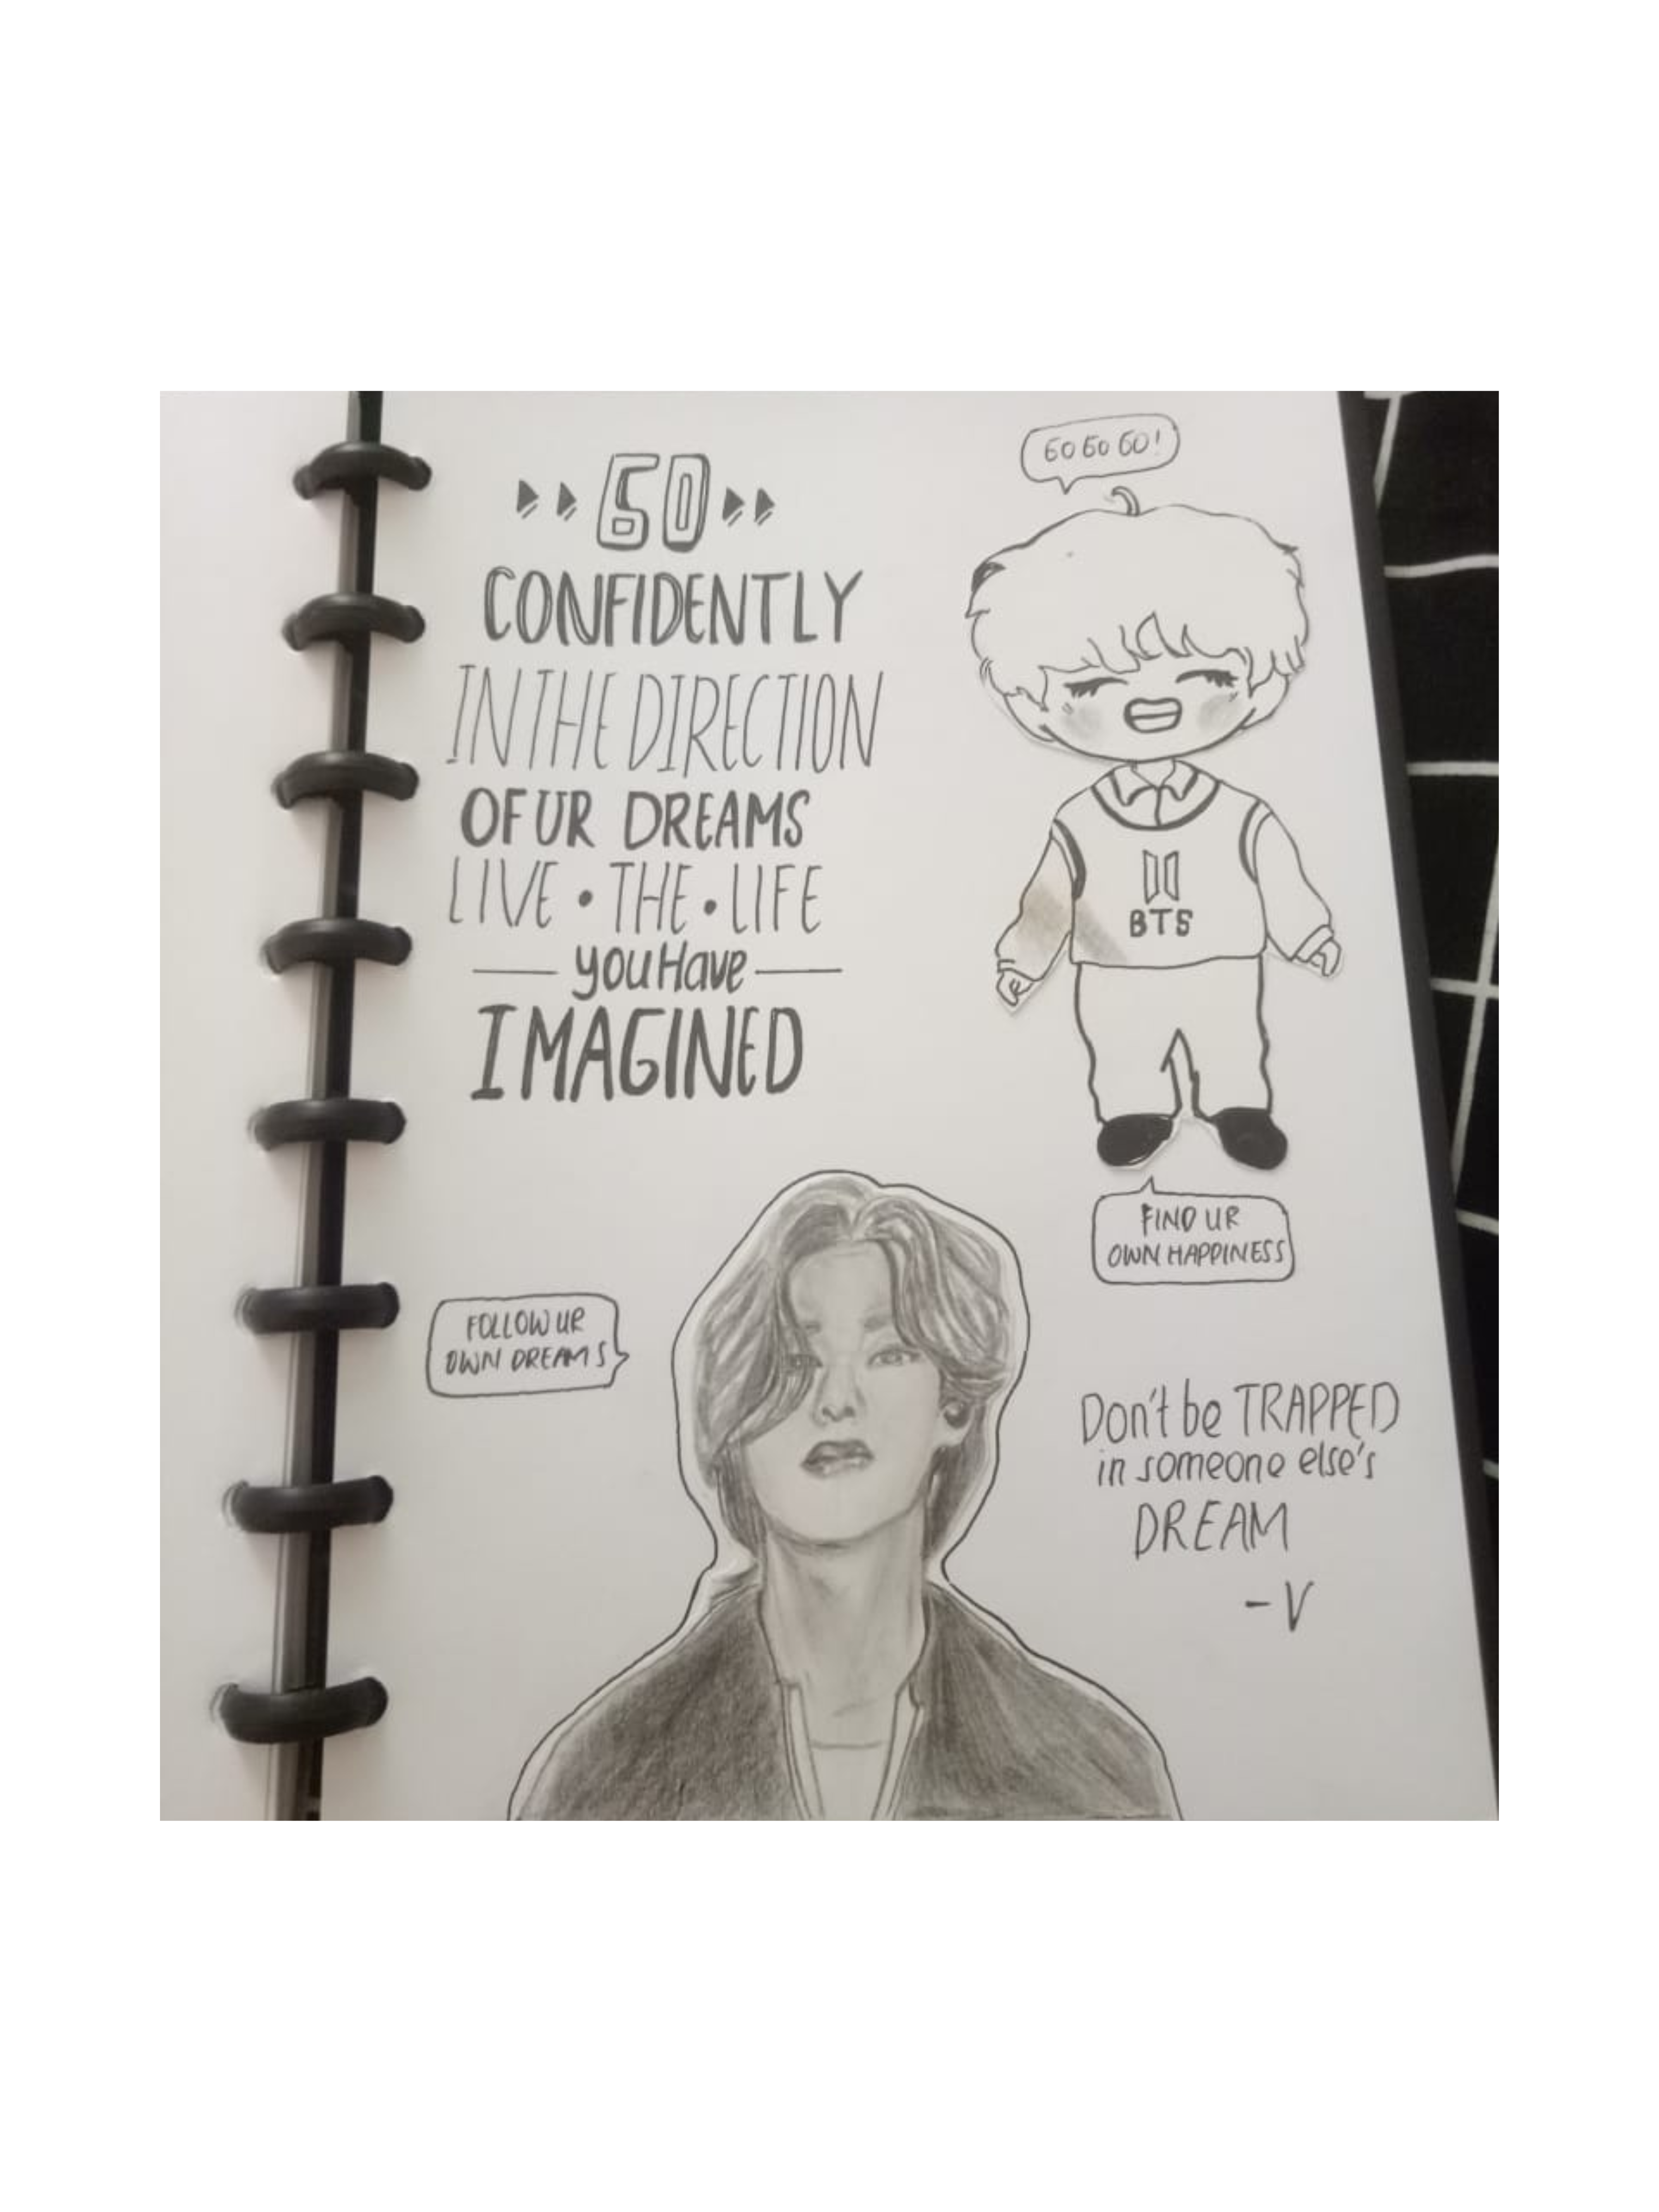 GO
CONFIDENTLY
IN THE DIRECTION
OF UR DREAMS
LIVE • THE • LIFE
— you Have —
IMAGINED
GO GO GO!
BTS
FIND UR
OWN HAPPINESS
FOLLOW UR
OWN DREAMS
Don't be TRAPPED
in someone else's
DREAM
- V